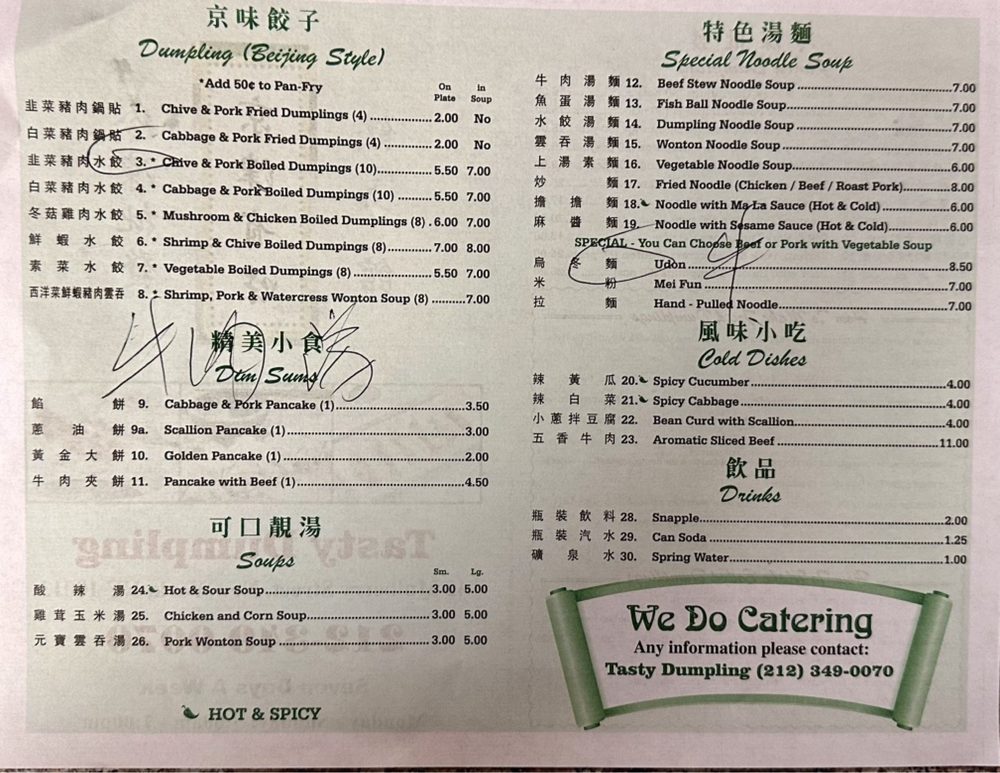 京味餃子
Dumpling (Beijing Style)
*Add 50¢ to Pan-Fry
On Plate in Soup
韭菜豬肉鍋貼 1. Chive & Pork Fried Dumplings (4) 2.00 No
白菜豬肉鍋貼 2. Cabbage & Pork Fried Dumpings (4) 2.00 No
韭菜豬肉水餃 3. * Chive & Pork Boiled Dumpings (10) 5.50 7.00
白菜豬肉水餃 4. * Cabbage & Pork Boiled Dumpings (10) 5.50 7.00
冬菇雞肉水餃 5. * Mushroom & Chicken Boiled Dumplings (8) .6.00 7.00
鮮蝦水餃 6. * Shrimp & Chive Boiled Dumpings (8) 7.00 8.00
素菜水餃 7. * Vegetable Boiled Dumpings (8) 5.50 7.00
西洋菜鮮蝦豬肉雲吞 8. * Shrimp, Pork & Watercress Wonton Soup (8) 7.00
牛肉湯
精美小食
Dim Sums
餡餅 9. Cabbage & Pork Pancake (1) 3.50
蔥油餅 9a. Scallion Pancake (1) 3.00
黃金大餅 10. Golden Pancake (1) 2.00
牛肉夾餅 11. Pancake with Beef (1) 4.50
可口靚湯
Soups
Sm. Lg.
酸辣湯 24. Hot & Sour Soup 3.00 5.00
雞茸玉米湯 25. Chicken and Corn Soup 3.00 5.00
元寶雲吞湯 26. Pork Wonton Soup 3.00 5.00
HOT & SPICY
特色湯麵
Special Noodle Soup
牛肉湯麵 12. Beef Stew Noodle Soup 7.00
魚蛋湯麵 13. Fish Ball Noodle Soup 7.00
水餃湯麵 14. Dumpling Noodle Soup 7.00
雲吞湯麵 15. Wonton Noodle Soup 7.00
上湯素麵 16. Vegetable Noodle Soup 6.00
炒麵 17. Fried Noodle (Chicken / Beef / Roast Pork) 8.00
擔擔麵 18. Noodle with Ma La Sauce (Hot & Cold) 6.00
麻醬麵 19. Noodle with Sesame Sauce (Hot & Cold) 6.00
SPECIAL - You Can Choose Beef or Pork with Vegetable Soup
烏冬麵 Udon 8.50
米粉 Mei Fun 7.00
拉麵 Hand - Pulled Noodle 7.00
牛
風味小吃
Cold Dishes
辣黃瓜 20. Spicy Cucumber 4.00
辣白菜 21. Spicy Cabbage 4.00
小蔥拌豆腐 22. Bean Curd with Scallion 4.00
五香牛肉 23. Aromatic Sliced Beef 11.00
飲品
Drinks
瓶裝飲料 28. Snapple 2.00
瓶裝汽水 29. Can Soda 1.25
礦泉水 30. Spring Water 1.00
We Do Catering
Any information please contact:
Tasty Dumpling (212) 349-0070